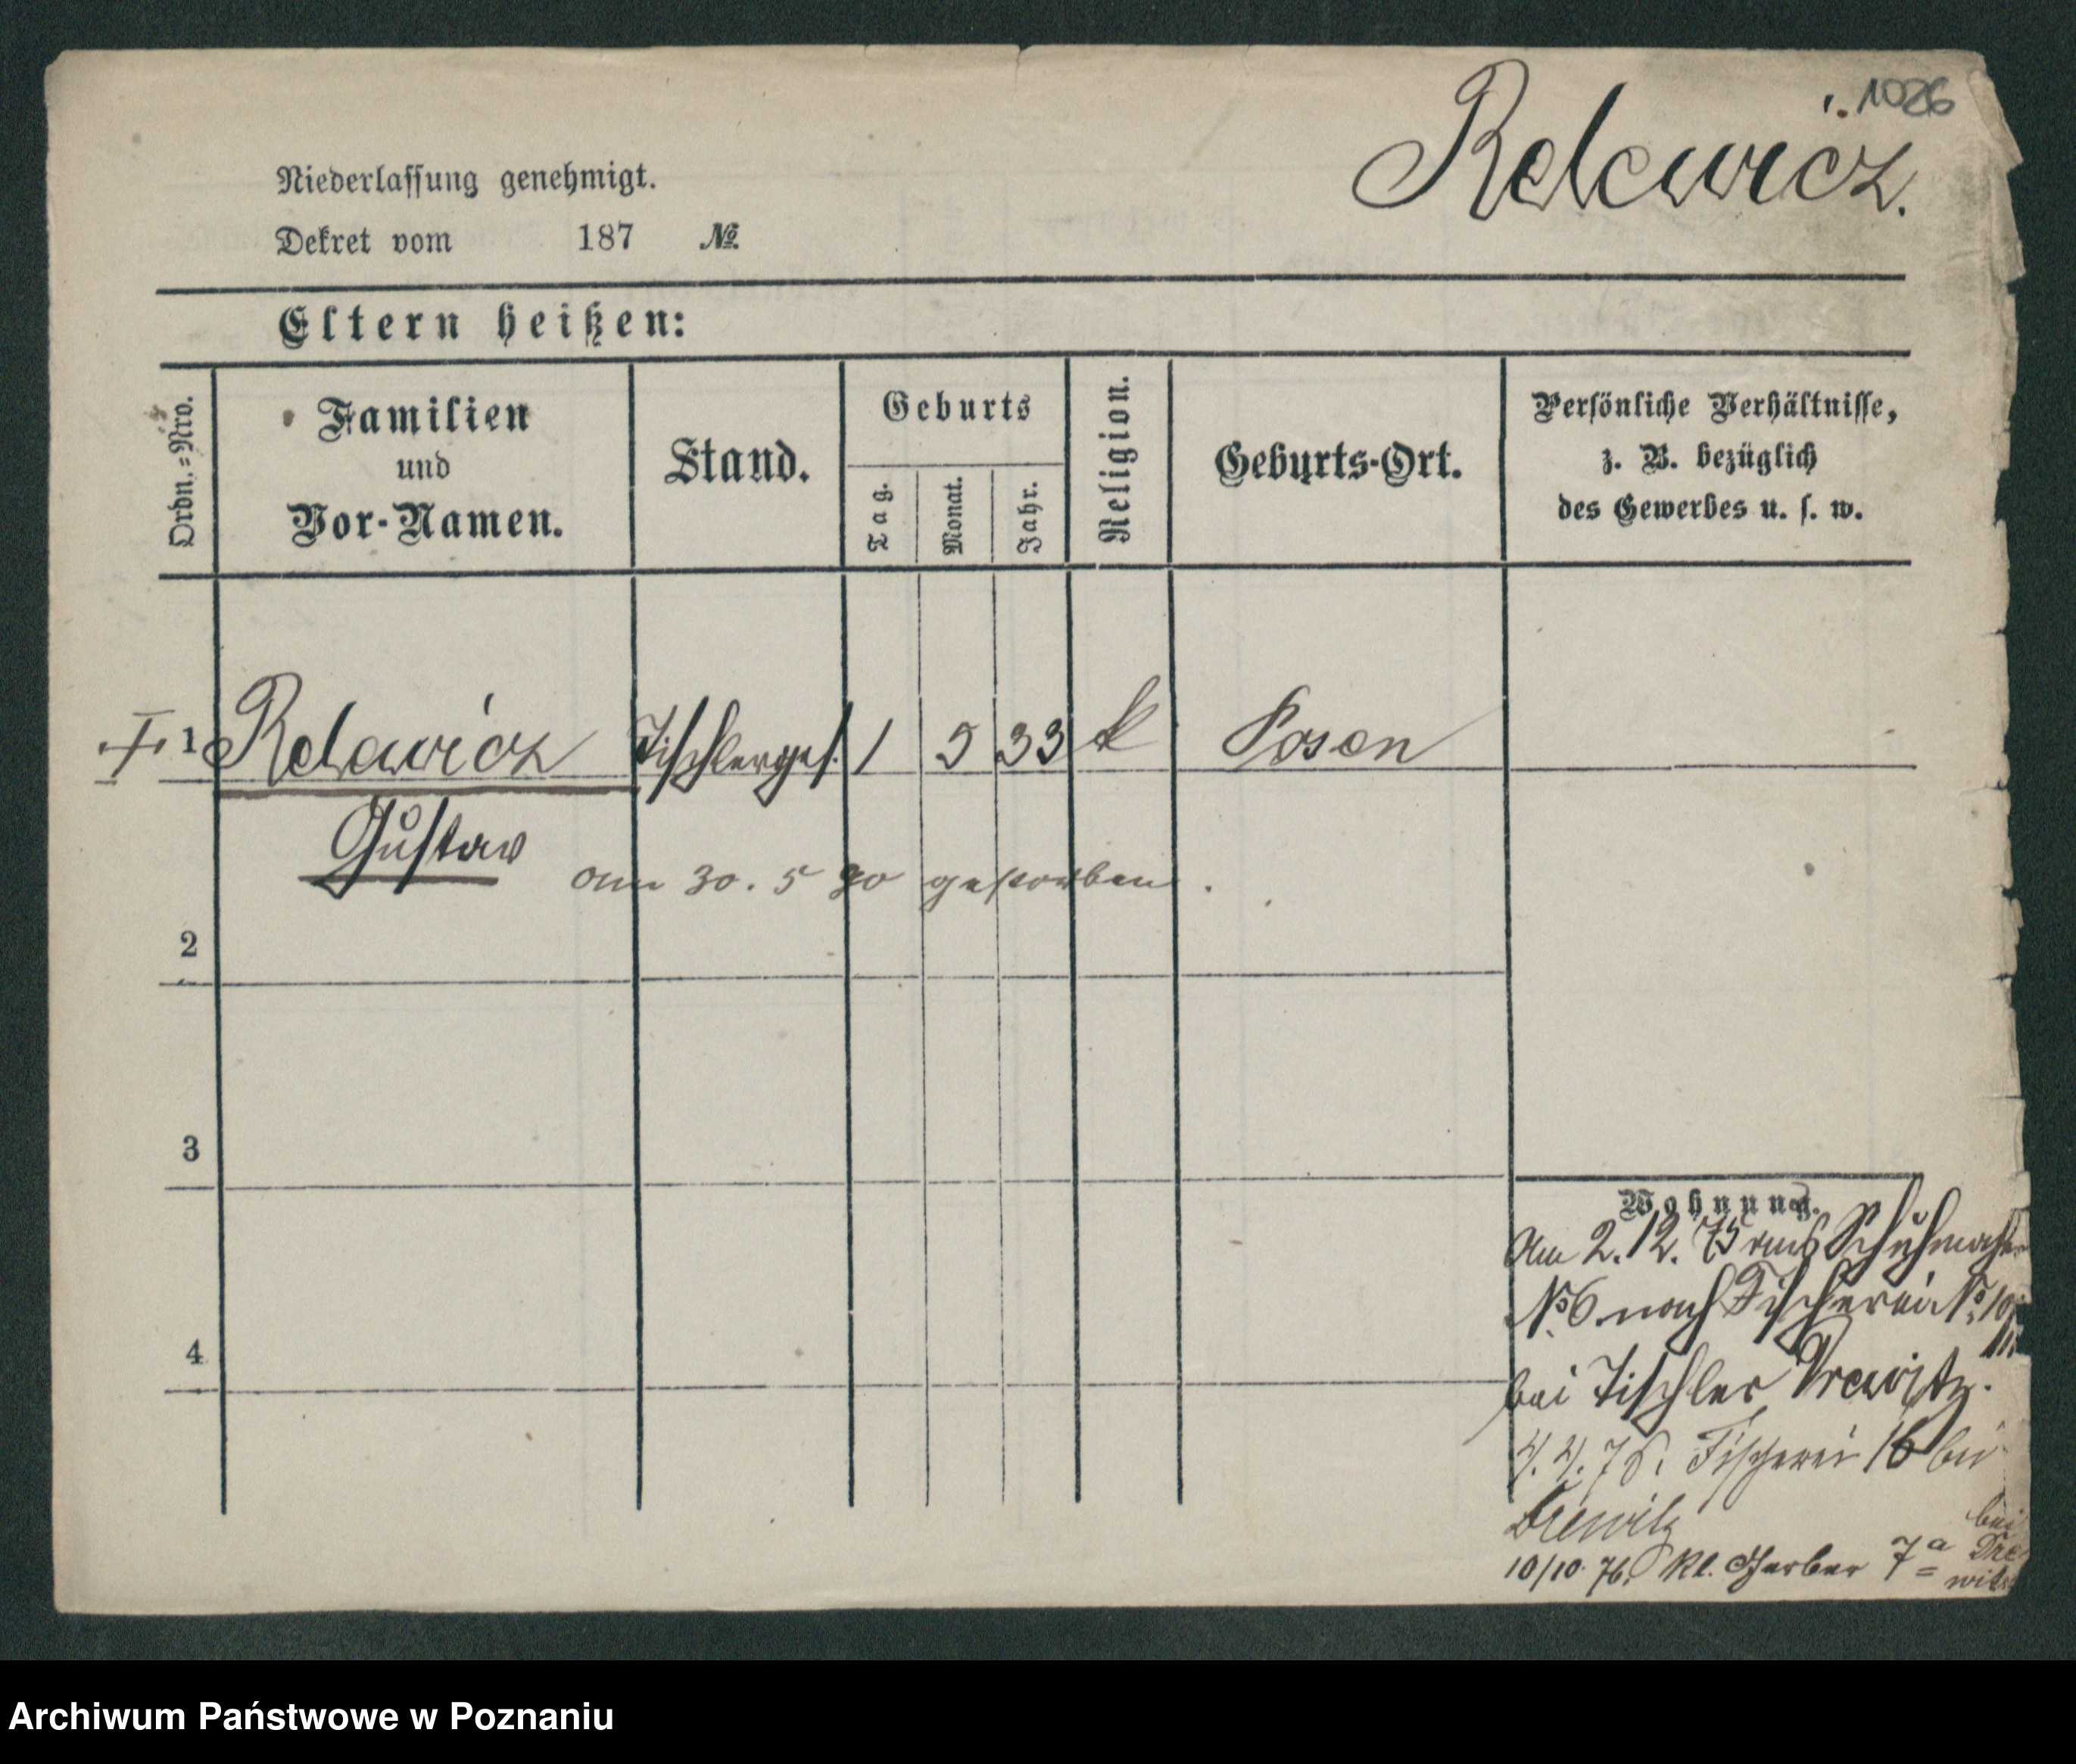 1026
Relewicz.
Niederlassung genehmigt.
Dekret vom 187 №
Eltern heißen:
Ordn.=Nro.
Familien
und
Vor-Namen.
Stand.
Geburts
Tag.
Monat.
Jahr.
Religion.
Geburts-Ort.
Persönliche Verhältnisse,
z. B. bezüglich
des Gewerbes u. s. w.
1 Relewicz Tischlerges. 1 5 33 k Posen
Gustav
am 30. 5 90 gestorben.
2
3
4
Wohnung.
Am 2. 12. 75 von Schuhmacher
№ 6 nach Fischerei № 10
bei Tischler Drewitz.
4. 4. 76. Fischerei 16 bei
Drewitz
10/10. 76. Kl. Gerber 7a bei
Dre
witz
Archiwum Państwowe w Poznaniu